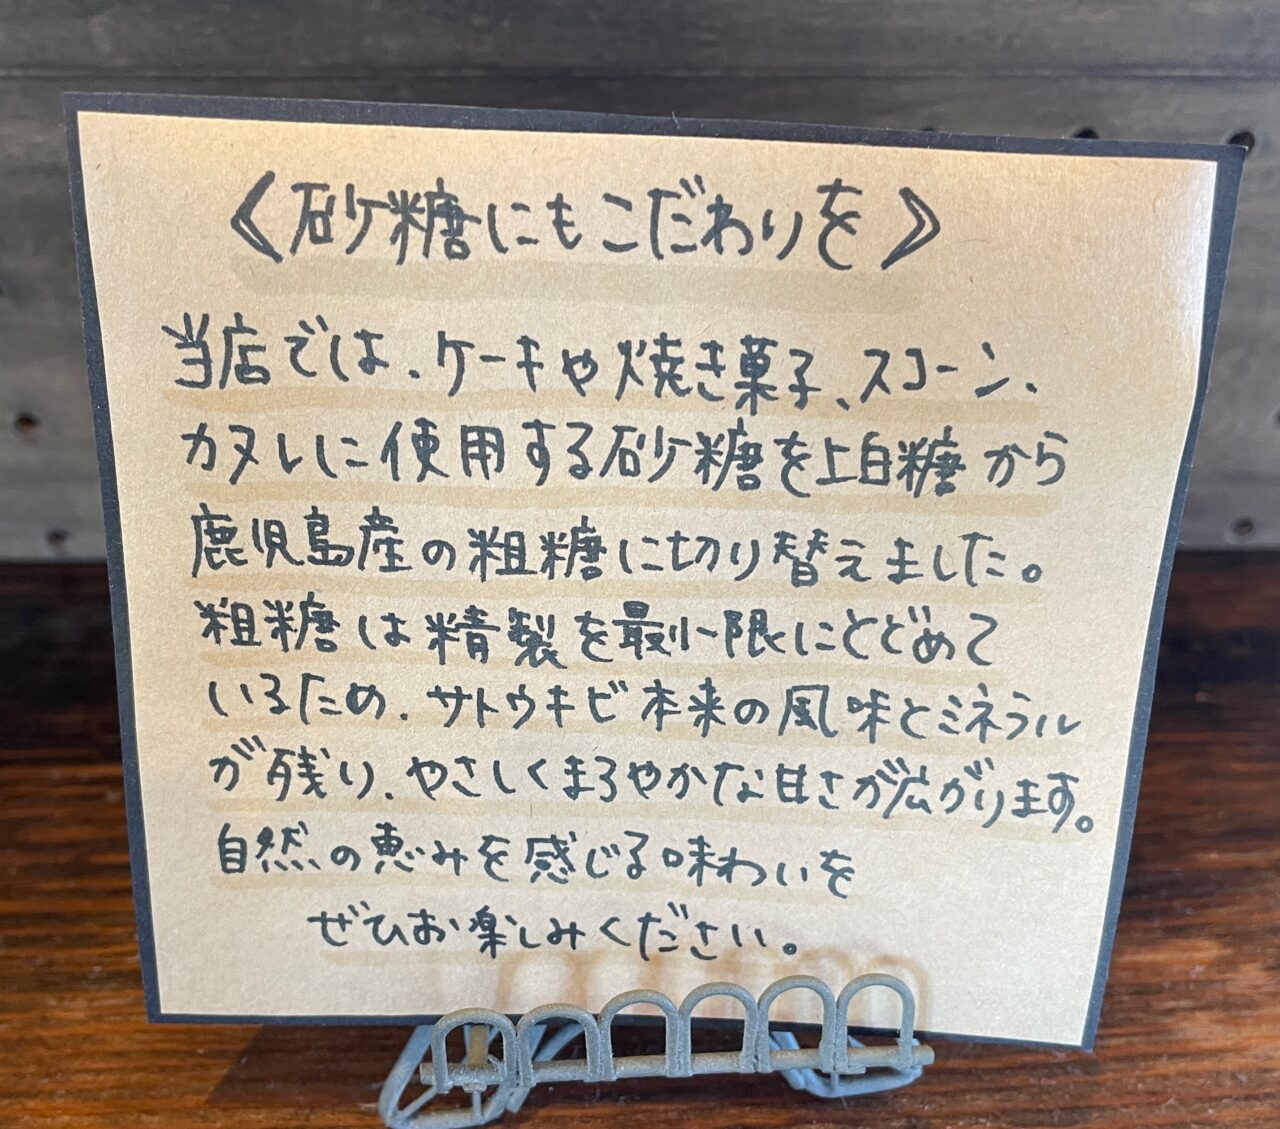 《砂糖にもこだわりを》
当店では、ケーキや焼き菓子、スコーン、
カヌレに使用する砂糖を上白糖から
鹿児島産の粗糖に切り替えました。
粗糖は精製を最小限にとどめて
いるため、サトウキビ本来の風味とミネラル
が残り、やさしくまろやかな甘さが広がります。
自然の恵みを感じる味わいを
ぜひお楽しみください。